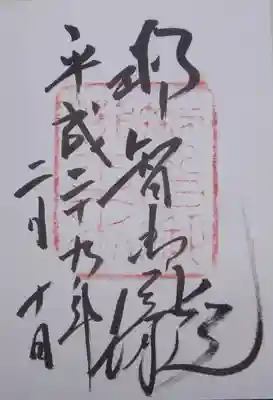 那智御瀧
平成二十九年
二月十日